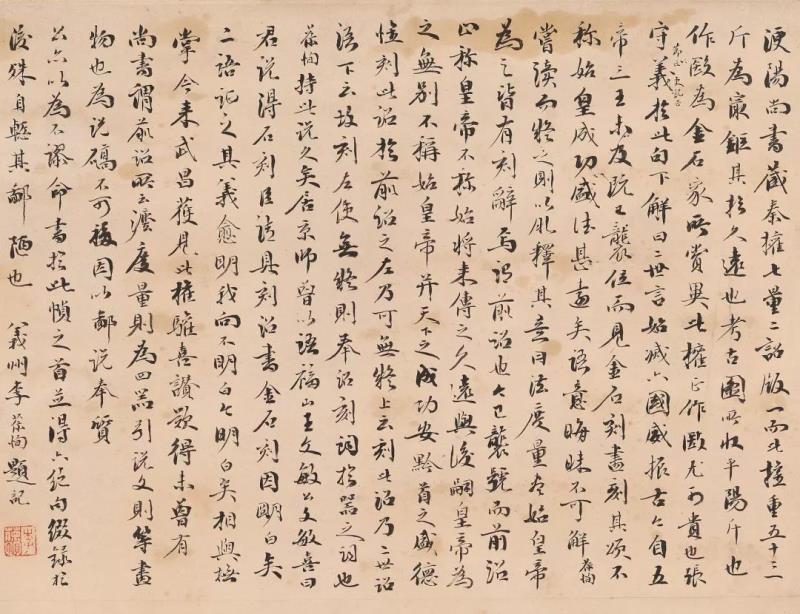 浭陽尚書藏秦權七量二詔版一而此權重五十三
斤為最鉅其於久遠也考古圖所收平陽斤也
作敺為金石家所賞異此權亦作敺尤可貴也張
守義於此句下解曰二世言始滅六國威振古今自五
帝三王未及既已襲位而見金石刻盡刻其頌不
稱始皇成功盛德甚遠矣語意晦昧不可解葆恂
嘗讀而疑之則以肊釋其意曰法度量盡始皇帝
為之皆有刻辭焉謂前詔也今已襲號而前詔
止稱皇帝不稱始將來傳之久遠與後嗣皇帝為
之無別不稱始皇帝并天下之成功安黔首之盛德
故刻此詔於前詔之左乃可無疑上云刻此詔乃二世詔
語下云故刻左使無疑則奉詔刻詞於器之詞也
葆恂持此說久矣居京師嘗以語福山王文敏公文敏喜曰
君說得石刻臣請具刻詔書金石刻因明白矣
二語証之其義愈明我向不明白今明白矣相與撫
掌今來武昌獲見此權驩喜讚歎得未曾有
尚書謂前詔所云灋度量則為四器引說文則等畫
物也為說礭不可移因以鄙說奉質
公亦以為不謬命書於此幀之首並得六絕句綴錄於
後殊自慙其鄙陋也 義州李葆恂題記